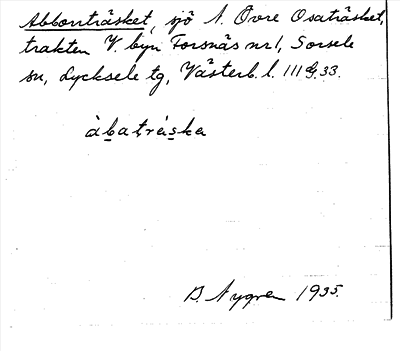 Abborrträsket, sjö N. Övre Osaträsket,
trakten V. byn Forsnäs nr 1, Sorsele
sn, Lycksele tg, Västerb. l. 111 G. 33.
àbatrȧska
B. Nygren 1935.